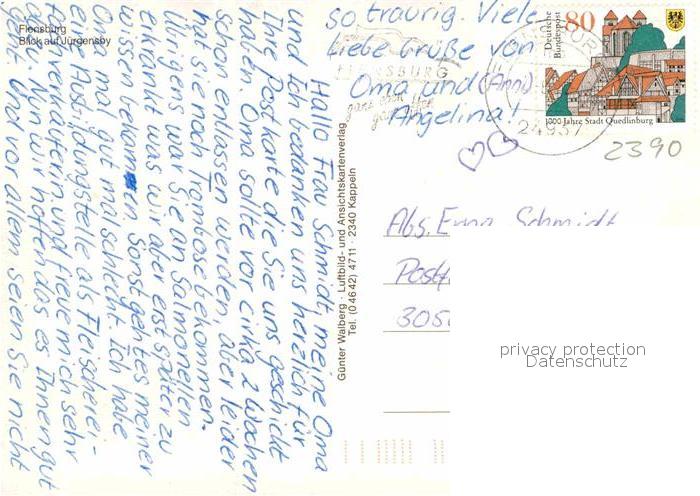 Flensburg
Blick auf Jürgensby
Hallo Frau Schmidt, meine Oma
und ich bedanken uns herzlich für
Ihre Postkarte die Sie uns geschickt
haben. Oma sollte vor cirka 2 Wochen
schon entlassen werden, aber leider
hat sie noch Trombose bekommen.
Übrigens war Sie an Salmonellen
erkrankt was wir aber erst später zu
wissen bekamen. Sonst gehtes meiner
Oma mal gut mal schlecht. Ich habe
eine Ausbildungstelle als Fleischerei-
fachverkäuferin und freue mich sehr
Nun wir hoffen das es Ihnen gut
geht. Und vor allem seien Sie nicht
so traurig. Viele
liebe Grüße von
Oma und (Anni)
Angelina!
Günter Walberg · Luftbild- und Ansichtskartenverlag
Tel. (0 46 42) 47 11 · 2340 Kappeln
FLENSBURG
Deutsche
Bundespost
80
1000 Jahre Stadt Quedlinburg
24937
2390
Abs. Erna Schmidt
Postf
305
privacy protection
Datenschutz